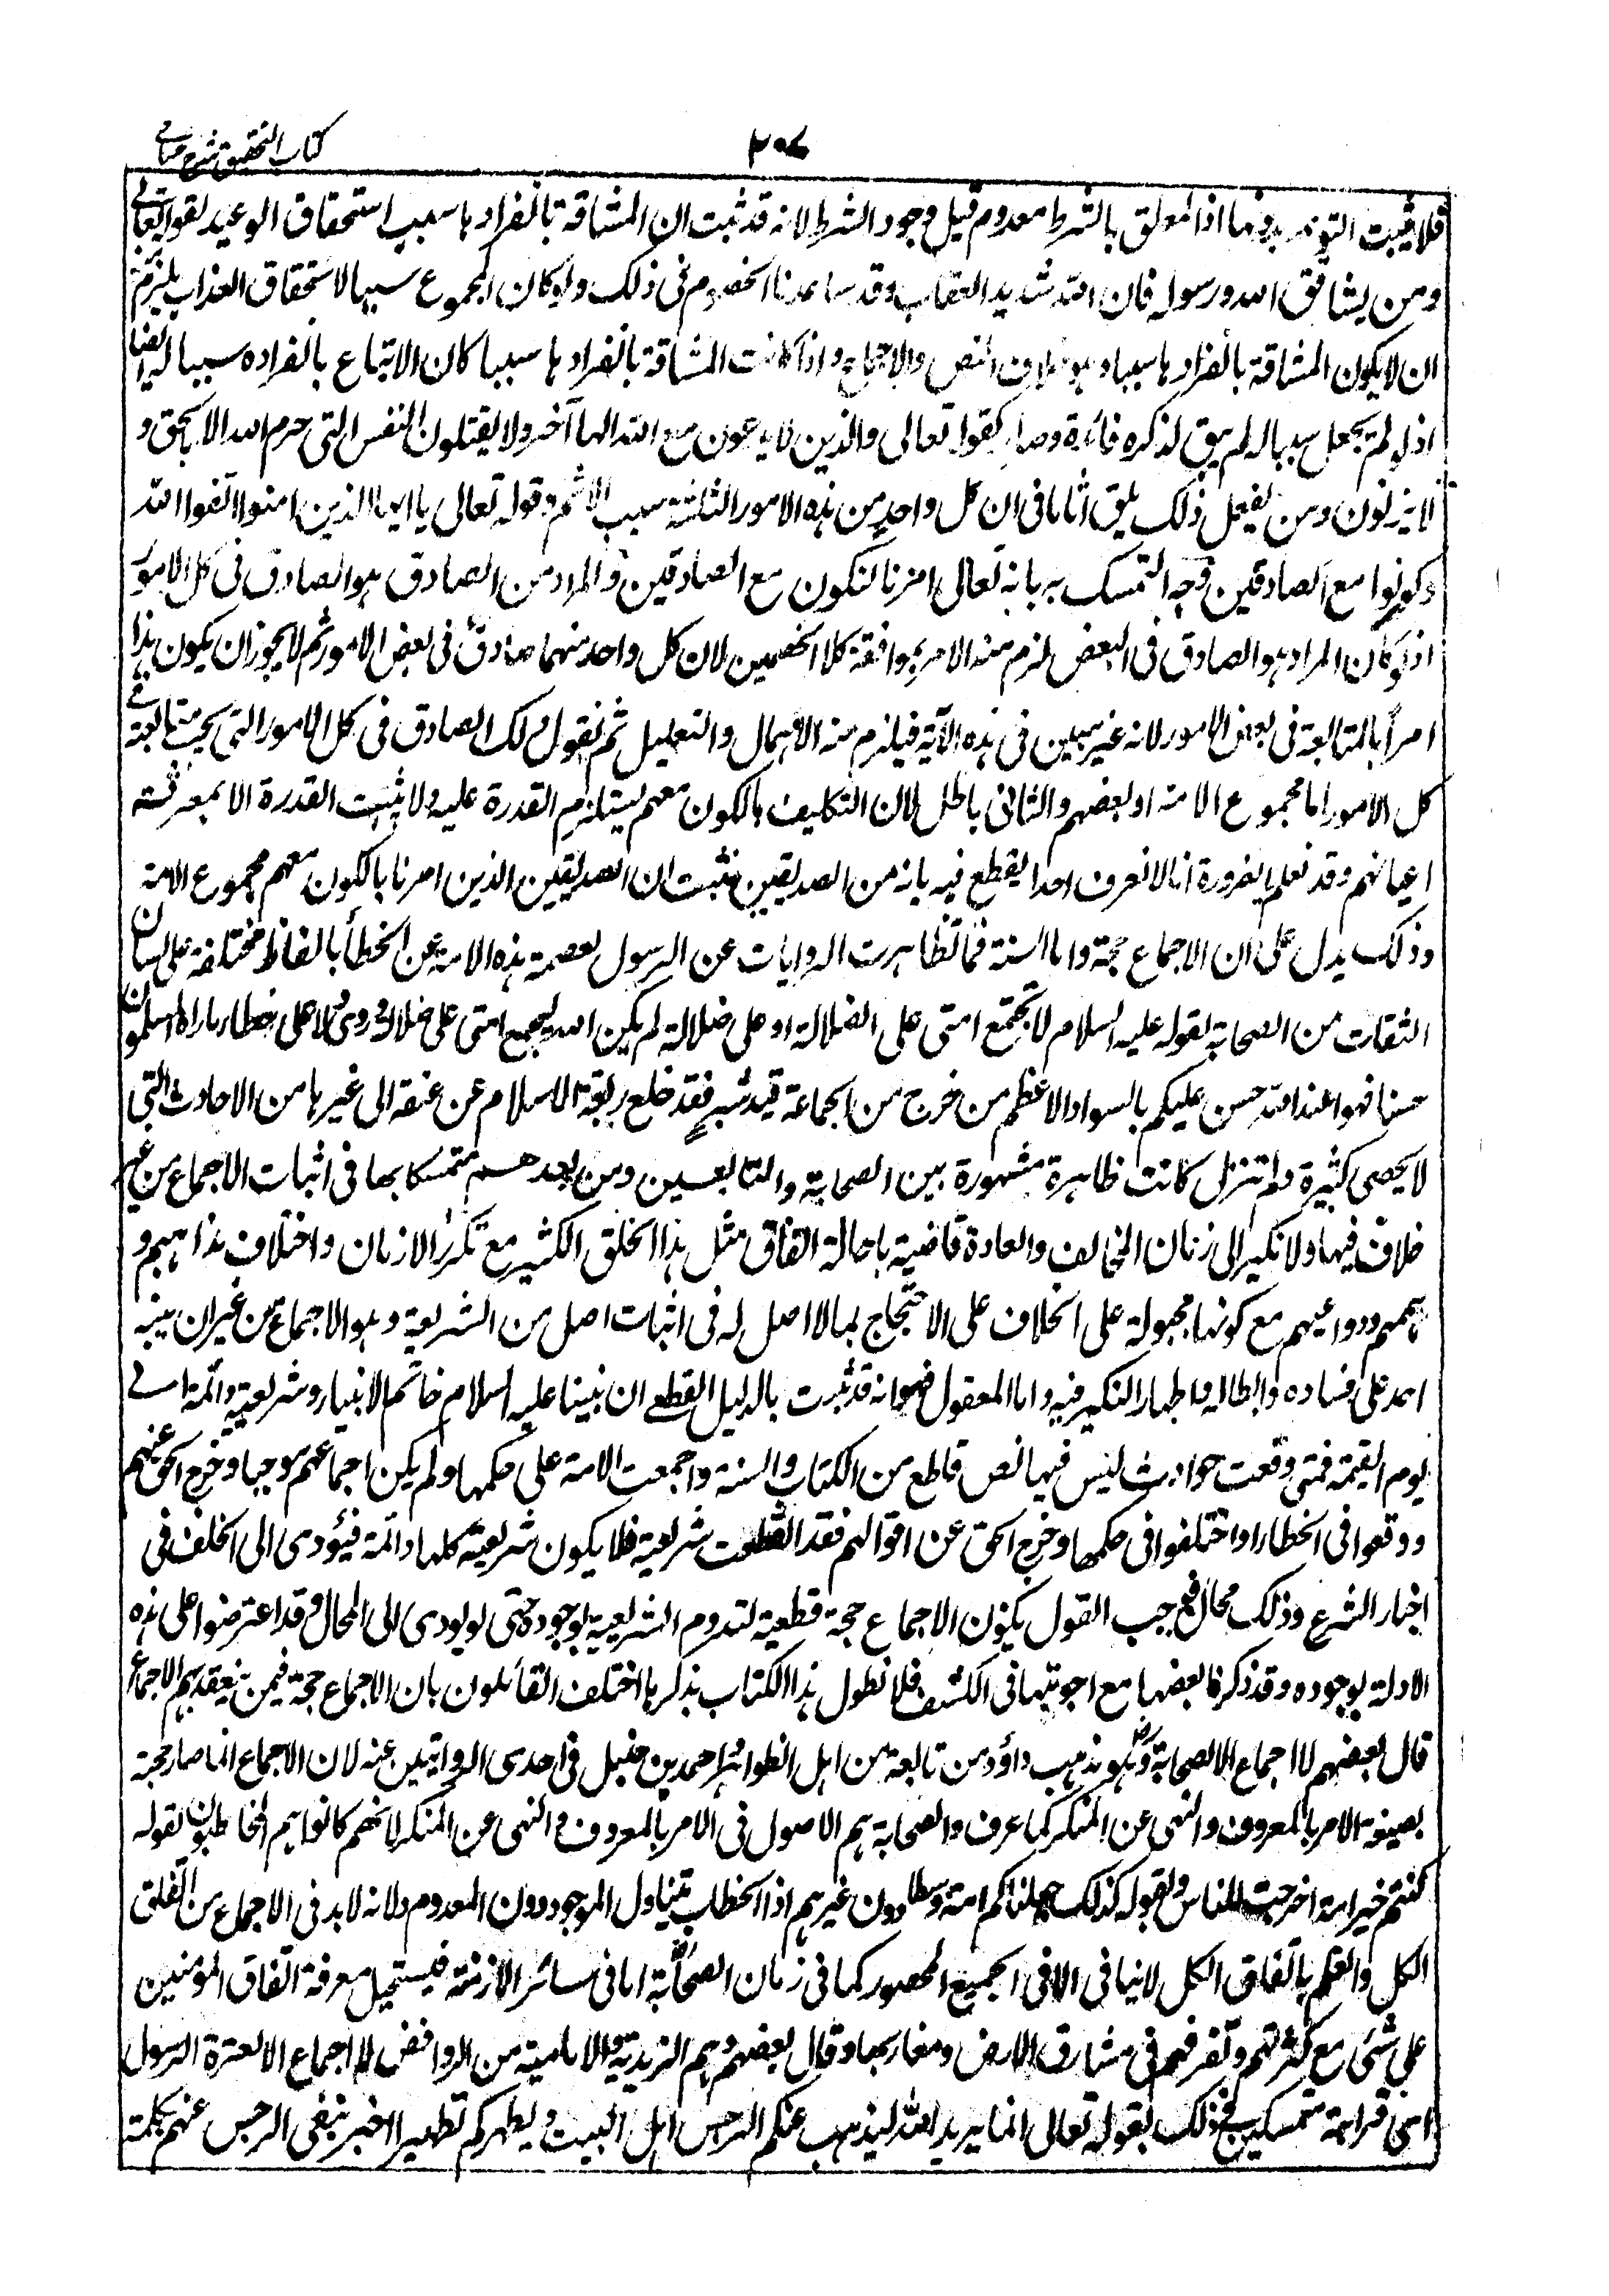 كتاب التحقيق شرح حسامى
٢٠٧
فلا يثبت التوعد بدونهما اذ المعلق بالشرط معدوم قبل وجود الشرط لانه قد ثبت ان المشاقة بانفرادها سبب استحقاق الوعيد لقوله تعالى
ومن يشاقق الله ورسوله فان الله شديد العقاب وقد ساعدنا الخصوم فى ذلك ولو كان المجموع سببا لاستحقاق العذاب يلزم منه
ان لا يكون المشاقة بانفرادها سببا وهو خلاف النص والاجماع واذا كانت المشاقة بانفرادها سببا كان الاتباع بانفراده سببا له ايضا
اذ لو لم يجعل سببا له لم يبق لذكره فائدة وصار كقوله تعالى والذين لا يدعون مع الله الها آخر ولا يقتلون النفس التى حرم الله الا بالحق و
لا يزنون ومن يفعل ذلك يلق اثاما فى ان كل واحد من هذه الامور الثلثة سبب الاثم وقوله تعالى يا ايها الذين امنوا اتقوا الله
وكونوا مع الصادقين وجه التمسك به بانه تعالى امرنا لنكون مع الصادقين والمراد من الصادق هو الصادق فى كل الامور
اذ لو كان المراد هو الصادق فى البعض لزم منه الامر بموافقة كلا الخصمين لان كل واحد منهما صادق فى بعض الامور ثم لا يجوز ان يكون هذا
امرا بالمتابعة فى بعض الامور لانه غير مبين فى هذه الآية فيلزم منه الاهمال والتعطيل ثم نقول ذلك الصادق فى كل الامور التى يجب متابعته فى
كل الامور اما مجموع الامة او بعضهم والثانى باطل لان التكليف بالكون معهم يستلزم القدرة عليه ولا يثبت القدرة الا بمعرفته
اعيانهم وقد نعلم بالضرورة انا لا نعرف احدا يقطع فيه بانه من الصديقين فثبت ان الصديقين الذين امرنا بالكون معهم مجموع الامة
وذلك يدل على ان الاجماع حجة واما السنة فما تظاهرت الروايات عن الرسول بعصمة هذه الامة عن الخطأ بالفاظ مختلفة على لسان
الثقات من الصحابة لقوله عليه السلام لا تجتمع امتى على الضلالة او على ضلالة لم يكن الله ليجمع امتى على ضلالة وروى ولا على خطاء ما راه المسلمون
حسنا فهو عند الله حسن عليكم بالسواد الاعظم من خرج من الجماعة قيد شبر فقد خلع ربقة الاسلام عن عنقه الى غيرها من الاحاديث التى
لا يحصى كثيرة ولم تنزل كانت ظاهرة مشهورة بين الصحابة والتابعين ومن بعدهم متمسكا بها فى اثبات الاجماع من غير
خلاف فيها ولا نكير الى زمان المخالف والعادة قاضية باحالة اتفاق مثل هذا الخلق الكثير مع تكرر الازمان واختلاف مذاهبهم و
هممهم ودواعيهم مع كونها مجبولة على الخلاف على الاحتجاج بما لا اصل له فى اثبات اصل من الشريعة وهو الاجماع من غير ان ينبه
احد على فساده وابطاله واظهار النكير فيه واما المعقول فهو انه قد ثبت بالدليل القطعى ان نبينا عليه السلام خاتم الانبياء وشريعته دائمة الى
يوم القيمة فمتى وقعت حوادث ليس فيها نص قاطع من الكتاب والسنة واجمعت الامة على حكمها ولم يكن اجماعهم موجبا وخرج الحق عنهم
ووقعوا فى الخطاء او اختلفوا فى حكمها وخرج الحق عن اقوالهم فقد انقطعت شريعته فلا يكون شريعته كلها دائمة فيؤدى الى الخلف فى
اخبار الشرع وذلك محال فوجب القول بكون الاجماع حجة قطعية لتدوم الشريعة بوجوده حتى لو يؤدى الى المحال وقد اعترضوا على هذه
الادلة بوجوه وقد ذكرنا بعضها مع اجوبتها فى الكشف فلا نطول هذا الكتاب بذكرها اختلف القائلون بان الاجماع حجة فيمن ينعقد بهم الاجماع
قال بعضهم لا اجماع الا للصحابة رض وهو مذهب داؤد ومن تابعه من اهل الظواهر واحمد بن حنبل فى احدى الروايتين عنه لان الاجماع انما صار حجة
بصيغة الامر بالمعروف والنهى عن المنكر كما عرف والصحابة هم الاصول فى الامر بالمعروف والنهى عن المنكر لانهم كانوا هم المخاطبون لقوله
كنتم خير امة اخرجت للناس ولقوله كذلك جعلناكم امة وسطا دون غيرهم اذ الخطاب يتناول الموجود دون المعدوم ولانه لابد فى الاجماع من اتفاق
الكل والعلم باتفاق الكل لا نيافى الا فى الجميع المحصور كما فى زمان الصحابة اما فى سائر الازمنة فيستحيل معرفة اتفاق المؤمنين
على شئ مع كثرتهم وتفرقهم فى مشارق الارض ومغاربها وقال بعضهم وهم الزيدية والامامية من الروافض لا اجماع الا لعترة الرسول
اى قرابته متمسكين فى ذلك بقوله تعالى انما يريد الله ليذهب عنكم الرجس اهل البيت ويطهركم تطهيرا اخبر بنفى الرجس عنهم بكلمة